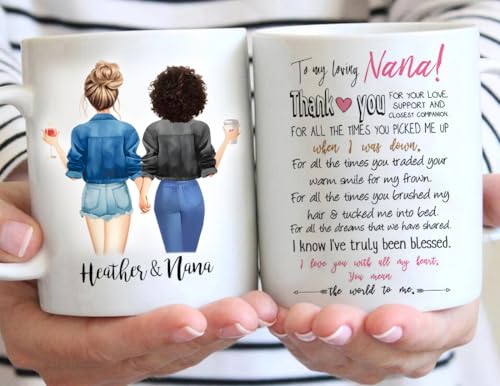 Heather & Nana
To my loving Nana!
Thank you FOR YOUR LOVE,
SUPPORT AND
CLOSEST COMPANION.
FOR ALL THE TIMES YOU PICKED ME UP
when I was down.
For all the times you traded your
warm smile for my frown.
For all the times you brushed my
hair & tucked me into bed.
For all the dreams that we have shared.
I know I've truly been blessed.
I love you with all my heart.
You mean
the world to me.